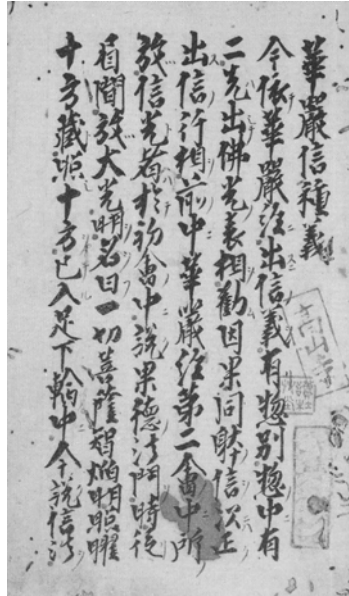 華嚴信種義
今依華嚴經出信義有惣別惣中有
二先出佛光表相勸因果同時信次正
出信行相前中華嚴經第二會中所
放信光者於初會中說果德法門時從
眉間放大光明名曰一切菩薩智焰明照曜
十方藏照十方已入足下輪中今說信法
高山寺